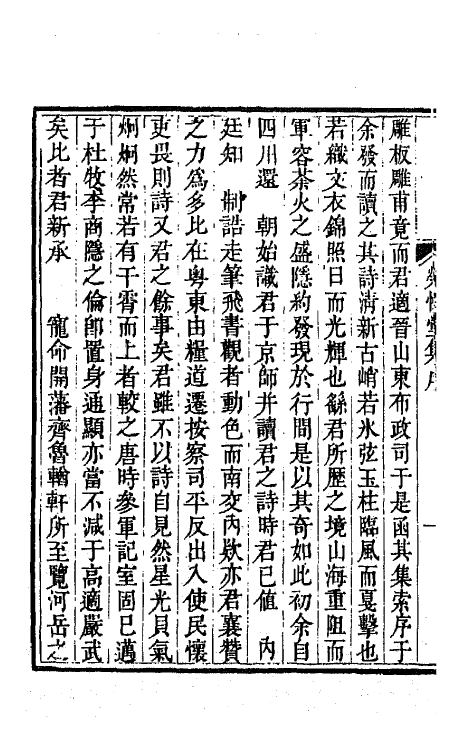 雕板雕甫竟而君適晉山東布政司于是函其集索序于
余發而讀之其詩清新古峭若氷弦玉柱臨風而戞擊也
若織文衣錦照日而光輝也繇君所歷之境山海重阻而
軍容荼火之盛隱約發現於行間是以其奇如此初余自
四川還 朝始識君于京師并讀君之詩時君已值 內
廷知 制誥走筆飛書觀者動色而南交內欵亦君襄贊
之力爲多比在粵東由糧道遷按察司平反出入使民懷
吏畏則詩又君之餘事矣君雖不以詩自見然星光貝氣
炯炯然常若有干霄而上者較之唐時參軍記室固已邁
于杜牧李商隱之倫卽置身通顯亦當不減于高適嚴武
矣比者君新承 寵命開藩齊魯輶軒所至覽河岳之
集序
一